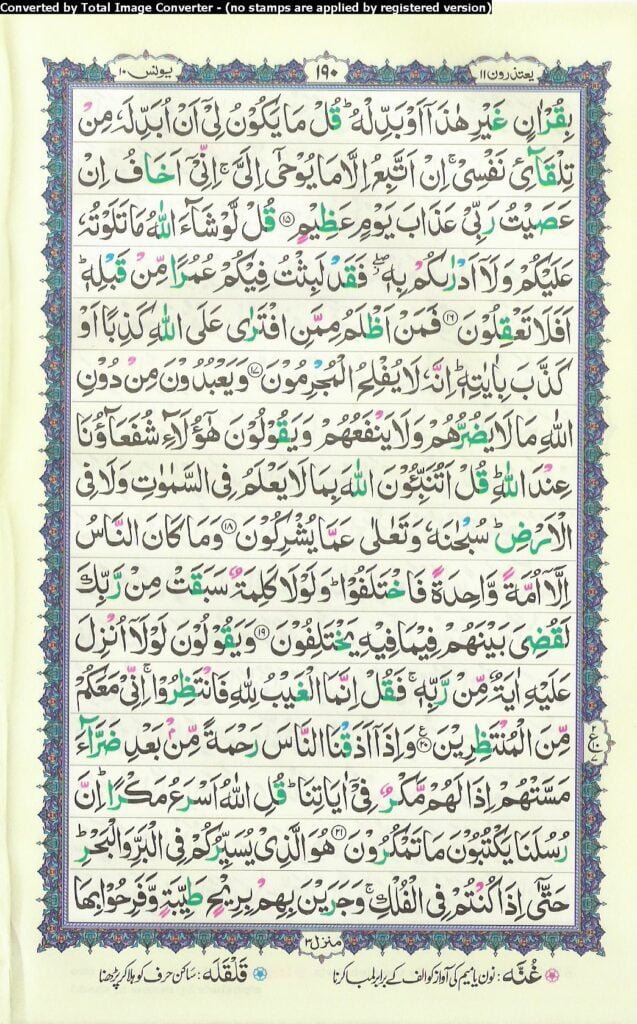 Converted by Total Image Converter - (no stamps are applied by registered version)
یعتذرون ۱۱
۱۹۰
یونس ۱۰
بِقُرْاٰنٍ غَیْرِ هٰذَاۤ اَوْ بَدِّلْهُ ؕ قُلْ مَا یَكُوْنُ لِیْۤ اَنْ اُبَدِّلَهٗ مِنْ
تِلْقَآئِ نَفْسِیْ ۚ اِنْ اَتَّبِعُ اِلَّا مَا یُوْحٰۤی اِلَیَّ ۚ اِنِّیْۤ اَخَافُ اِنْ
عَصَیْتُ رَبِّیْ عَذَابَ یَوْمٍ عَظِیْمٍ ﴿۱۵﴾ قُلْ لَّوْ شَآءَ اللّٰهُ مَا تَلَوْتُهٗ
عَلَیْكُمْ وَلَاۤ اَدْرٰىكُمْ بِهٖ ۖ٘ فَقَدْ لَبِثْتُ فِیْكُمْ عُمُرًا مِّنْ قَبْلِهٖ ؕ
اَفَلَا تَعْقِلُوْنَ ﴿۱۶﴾ فَمَنْ اَظْلَمُ مِمَّنِ افْتَرٰی عَلَی اللّٰهِ كَذِبًا اَوْ
كَذَّبَ بِاٰیٰتِهٖ ؕ اِنَّهٗ لَا یُفْلِحُ الْمُجْرِمُوْنَ ﴿۱۷﴾ وَیَعْبُدُوْنَ مِنْ دُوْنِ
اللّٰهِ مَا لَا یَضُرُّهُمْ وَلَا یَنْفَعُهُمْ وَیَقُوْلُوْنَ هٰۤؤُلَآءِ شُفَعَآؤُنَا
عِنْدَ اللّٰهِ ؕ قُلْ اَتُنَبِّـُٔوْنَ اللّٰهَ بِمَا لَا یَعْلَمُ فِی السَّمٰوٰتِ وَلَا فِی
الْاَرْضِ ؕ سُبْحٰنَهٗ وَتَعٰلٰی عَمَّا یُشْرِكُوْنَ ﴿۱۸﴾ وَمَا كَانَ النَّاسُ
اِلَّاۤ اُمَّةً وَّاحِدَةً فَاخْتَلَفُوْا ؕ وَلَوْلَا كَلِمَةٌ سَبَقَتْ مِنْ رَّبِّكَ
لَقُضِیَ بَیْنَهُمْ فِیْمَا فِیْهِ یَخْتَلِفُوْنَ ﴿۱۹﴾ وَیَقُوْلُوْنَ لَوْلَاۤ اُنْزِلَ
عَلَیْهِ اٰیَةٌ مِّنْ رَّبِّهٖ ۚ فَقُلْ اِنَّمَا الْغَیْبُ لِلّٰهِ فَانْتَظِرُوْا ۚ اِنِّیْ مَعَكُمْ
مِّنَ الْمُنْتَظِرِیْنَ ﴿۲۰﴾ وَاِذَاۤ اَذَقْنَا النَّاسَ رَحْمَةً مِّنْۢ بَعْدِ ضَرَّآءَ
مَسَّتْهُمْ اِذَا لَهُمْ مَّكْرٌ فِیْۤ اٰیَاتِنَا ؕ قُلِ اللّٰهُ اَسْرَعُ مَكْرًا ؕ اِنَّ
رُسُلَنَا یَكْتُبُوْنَ مَا تَمْكُرُوْنَ ﴿۲۱﴾ هُوَ الَّذِیْ یُسَیِّرُكُمْ فِی الْبَرِّ وَالْبَحْرِ ؕ
حَتّٰۤی اِذَا كُنْتُمْ فِی الْفُلْكِ ۚ وَجَرَیْنَ بِهِمْ بِرِیْحٍ طَیِّبَةٍ وَّفَرِحُوْا بِهَا
منزل ۳
غُنَّه: نون یا میم کی آواز کو الف کے برابر لمبا کرنا
قَلْقَلَه: ساکن حرف کو ہلا کر پڑھنا